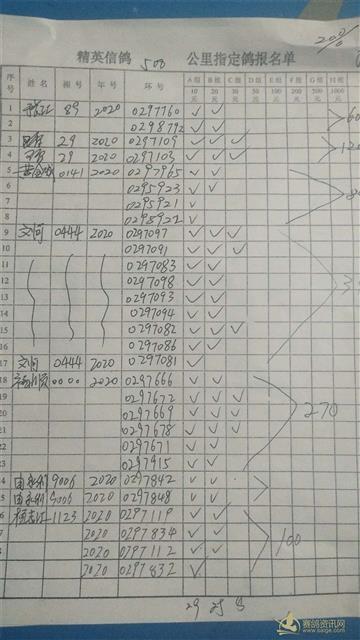 200/
精英信鸽 500 公里指定鸽报名单
序号 姓名 棚号 年号 环号 A组 10元 B组 20元 C组 30元 D组 50元 E组 100元 F组 200元 G组 500元 H组 1000元
1 89 2020 0297760 ✓ ✓
2 0298772 ✓ ✓ 60
3 29 2020 0297109 ✓ ✓ ✓
4 29 2020 0297103 ✓ ✓ ✓ 120
5 0141 2020 0297965 ✓ ✓
6 0295923 ✓ ✓
7 0295921 ✓
8 0298922 ✓
9 文何 0444 2020 0297097 ✓ ✓ ✓
10 0297091 ✓ ✓ ✓
11 0297083 ✓ ✓
12 0297098 ✓ ✓
13 0297093 ✓ ✓
14 0297094 ✓ ✓
15 0297082 ✓ ✓ ✓
16 0297086 ✓ ✓
17 文何 0444 2020 0297081 ✓
18 0000 2020 0297666 ✓ ✓
19 0297672 ✓ ✓ ✓
20 0297669 ✓ ✓ ✓ 270
21 0297678 ✓ ✓ ✓
22 0297671 ✓ ✓
23 0297915 ✓ ✓
24 9006 2020 0297842 ✓ ✓
25 9006 2020 0297848 ✓ ✓
26 杨志江 1123 2020 0297119 ✓ ✓
2020 0297834 ✓ ✓ 100
2020 0297112 ✓ ✓
2020 0297832 ✓
29
赛鸽资讯网
www.saige.com